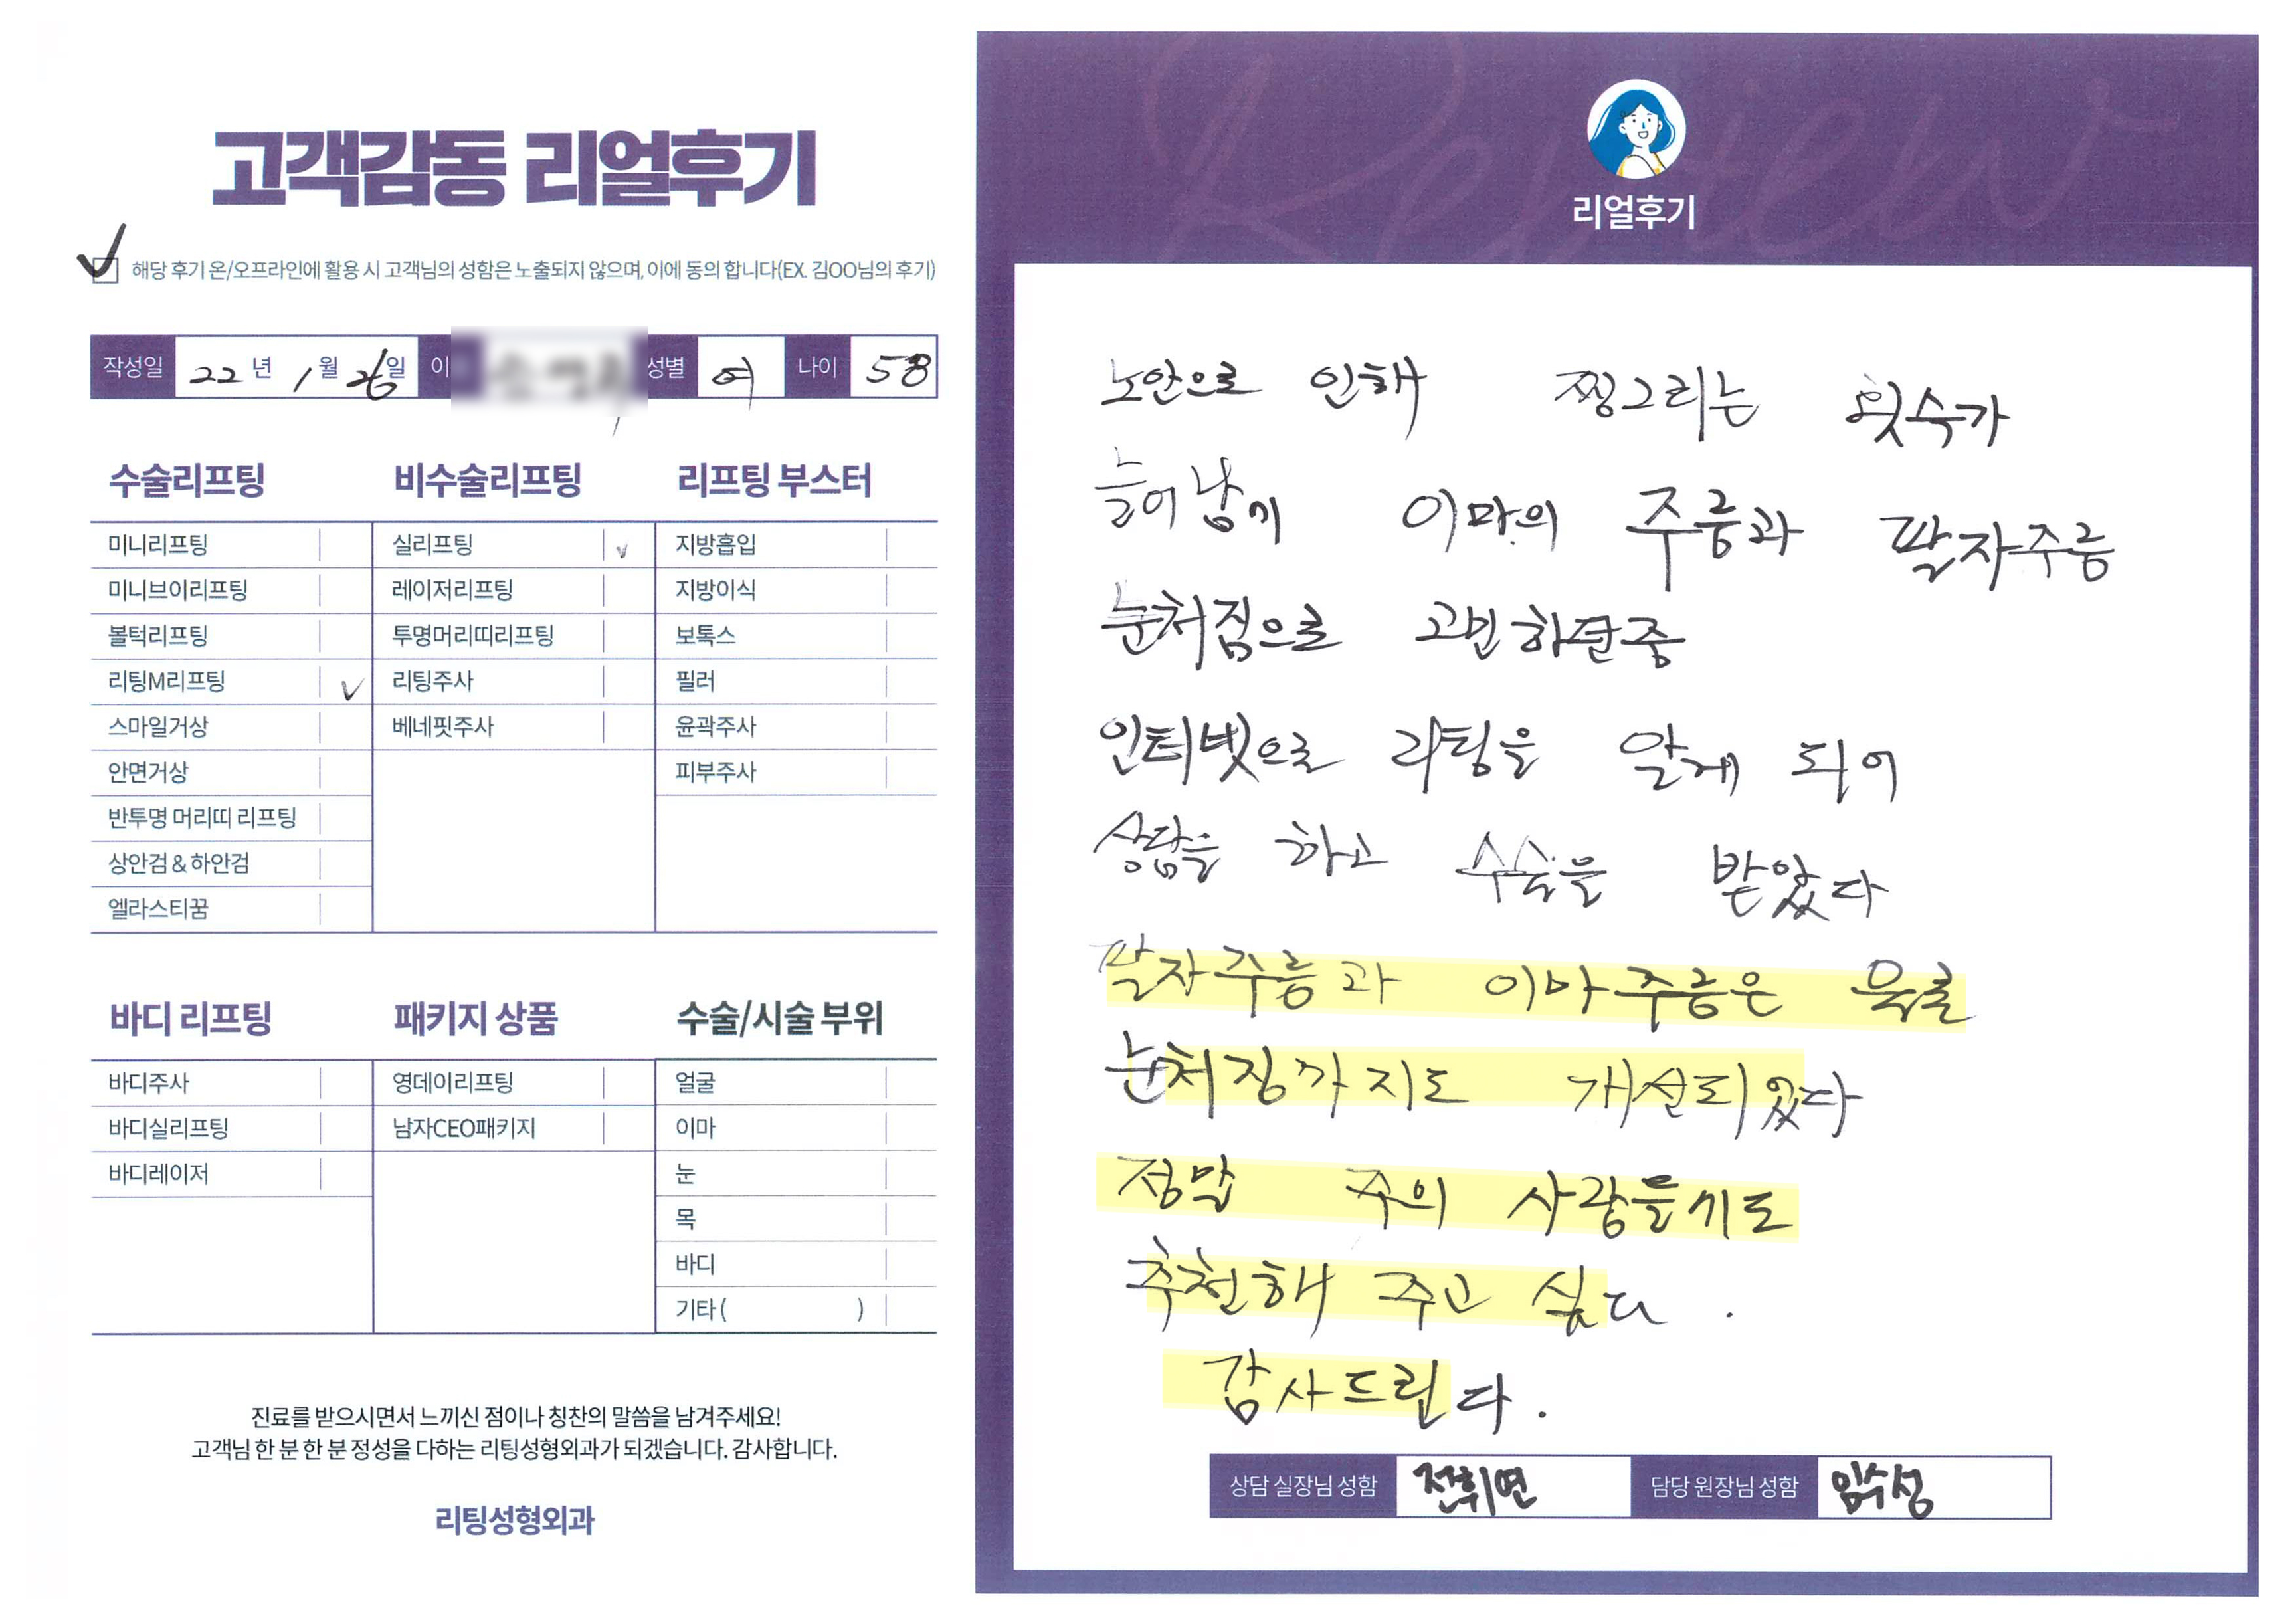 고객감동 리얼후기
해당 후기 온/오프라인에 활용 시 고객님의 성함은 노출되지 않으며, 이에 동의 합니다(EX. 김OO님의 후기)
작성일 22년 1월 26일 이 성별 여 나이 58
수술리프팅
미니리프팅
미니브이리프팅
볼턱리프팅
리팅M리프팅 ✓
스마일거상
안면거상
반투명 머리띠 리프팅
상안검&하안검
엘라스티꿈
비수술리프팅
실리프팅 ✓
레이저리프팅
투명머리띠리프팅
리팅주사
베네핏주사
리프팅 부스터
지방흡입
지방이식
보톡스
필러
윤곽주사
피부주사
바디 리프팅
바디주사
바디실리프팅
바디레이저
패키지 상품
영데이리프팅
남자CEO패키지
수술/시술 부위
얼굴
이마
눈
목
바디
기타( )
진료를 받으시면서 느끼신 점이나 칭찬의 말씀을 남겨주세요!
고객님 한 분 한 분 정성을 다하는 리팅성형외과가 되겠습니다. 감사합니다.
리팅성형외과
Review
리얼후기
노안으로 인해 찡그리는 횟수가
늘어남에 이마의 주름과 팔자주름
눈처짐으로 고민하던중
인터넷으로 리팅을 알게 되어
상담을 하고 수술을 받았다
팔자주름과 이마주름은 물론
눈처짐까지도 개선되었다
정말 주위 사람들께도
추천해 주고 싶다.
감사드린다.
상담 실장님 성함 전휘연 담당 원장님 성함 임수성